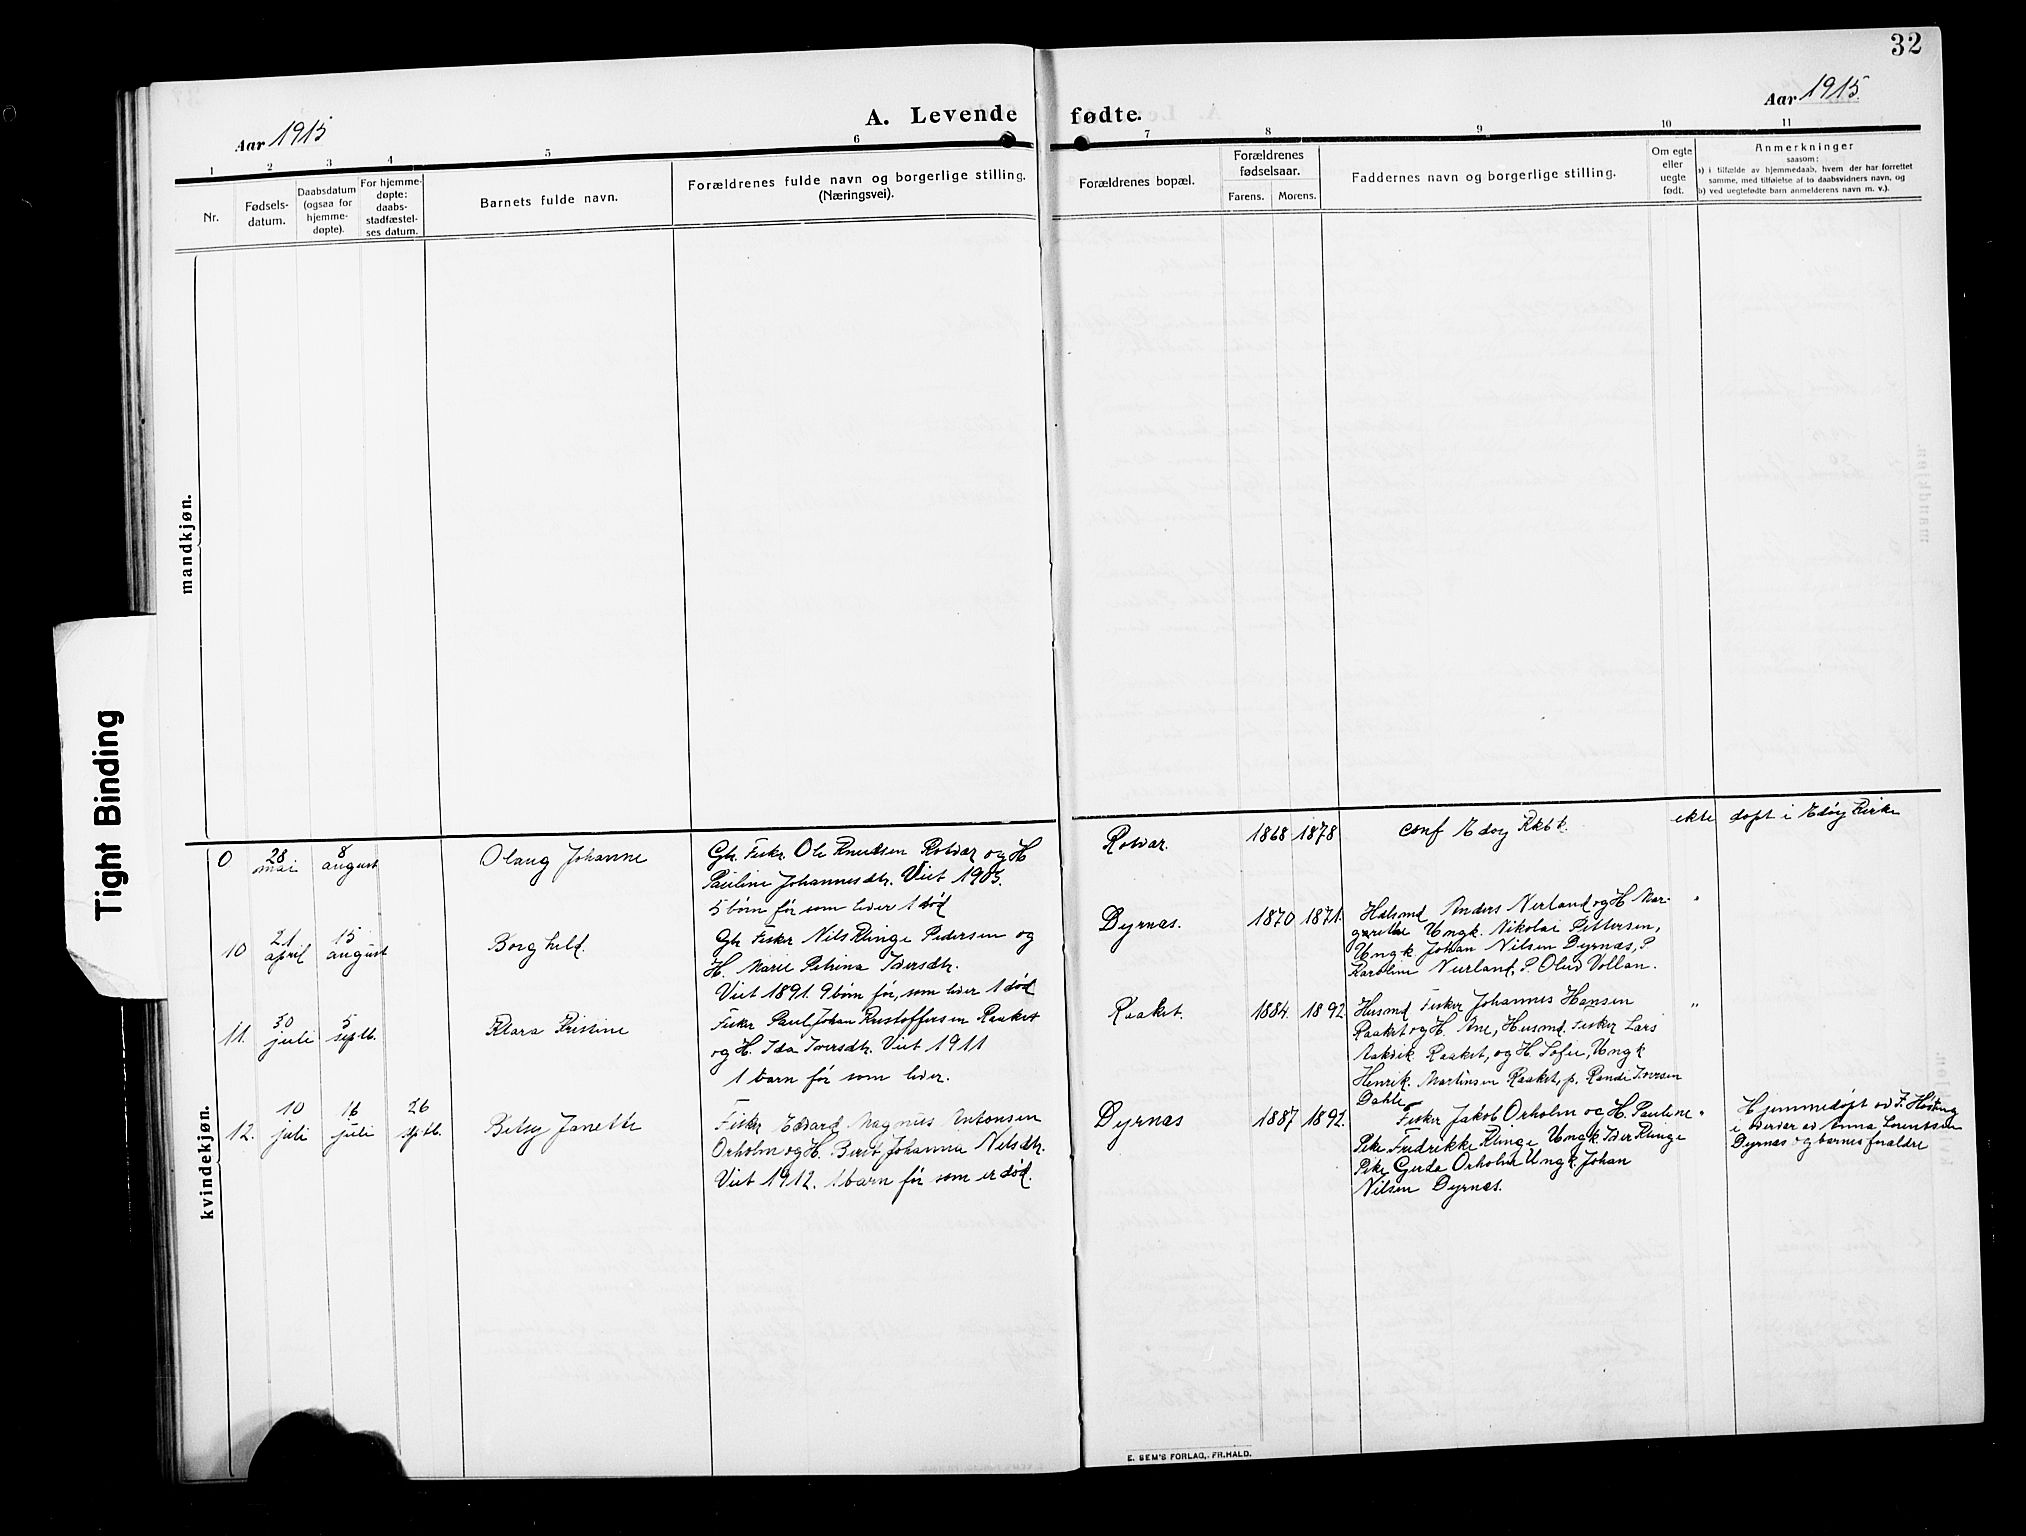 32
Aar 1915
A. Levende fødte.
Aar 1915.
1 2 3 4 5 6 7 8 9 10 11
Nr.
Fødsels-
datum.
Daabsdatum
(ogsaa for
hjemme-
døpte).
For hjemme-
døpte:
daabs-
stadfæstel-
ses datum.
Barnets fulde navn.
Forældrenes fulde navn og borgerlige stilling.
(Næringsvei).
Forældrenes bopæl.
Forældrenes
fødselsaar.
Farens. Morens.
Faddernes navn og borgerlige stilling.
Om egte
eller
uegte
født.
Anmerkninger
saasom:
a) i tilfælde av hjemmedaab, hvem der har forrettet
samme, med tilføielse af to daabsvidners navn, og
b) ved uegtefødte barn anmelderens navn m. v.).
mandkjøn.
Tight Binding
kvindekjøn.
0
28
mai
8
august
Olaug Johanne
Gh. Fisker Ole Knudsen Rotvær og H
Pauline Johannesdtr. Viet 1905.
5 børn før som lever 1 død
Rotvær.
1868 1878
conf Edøy Kkbk.
ekte
døpt i Edøy Kirke
10
21
april
15
august
Borghild.
Gh Fisker Nils Klinge Pedersen og
H. Marie Petrina Iversdtr.
Viet 1891. 9 børn før, som lever 1 død
Dyrnæs.
1870 1871.
Halsmd Anders Nerland og H Mar-
garethe Ungk. Nikolai Pettersen,
Ungk Johan Nilsen Dyrnæs, P
Karoline Nerland, P. Oluv Vollan.
"
11.
30
juli
5
septb.
Klara Kristine
Fisker Paul Johan Kristoffersen Raaket
og H. Ida Iversdtr. Viet 1911
1 barn før som lever.
Raaket.
1884. 1892.
Husmd Fisker Johannes Hansen
Raaket og H. Ane, Husmd. Fisker Lars
Aakvik Raaket, og H Sofie, Ungk
Henrik. Martinsen Raaket, p. Randi Iversen
Dahle
"
12.
10
juli
16
juli
26
septb.
Betsy Janette
Fisker Edvard Magnus Antonsen
Orholm og H. Berit Johanna Nilsdtr.
Viet 1912. 1 barn før som er død.
Dyrnæs
1887 1892.
Fisker Jakob Orholm og H. Pauline
Pike Fredrikke Klinge Ungk. Iver Klinge
Pike Gerda Orholm Ungk. Johan
Nilsen Dyrnæs.
"
Hjemmedøpt av F.
i nærvær av Anna Lorentsen
Dyrnæs og barnets forældre
E. SEM'S FORLAG, FR.HALD.